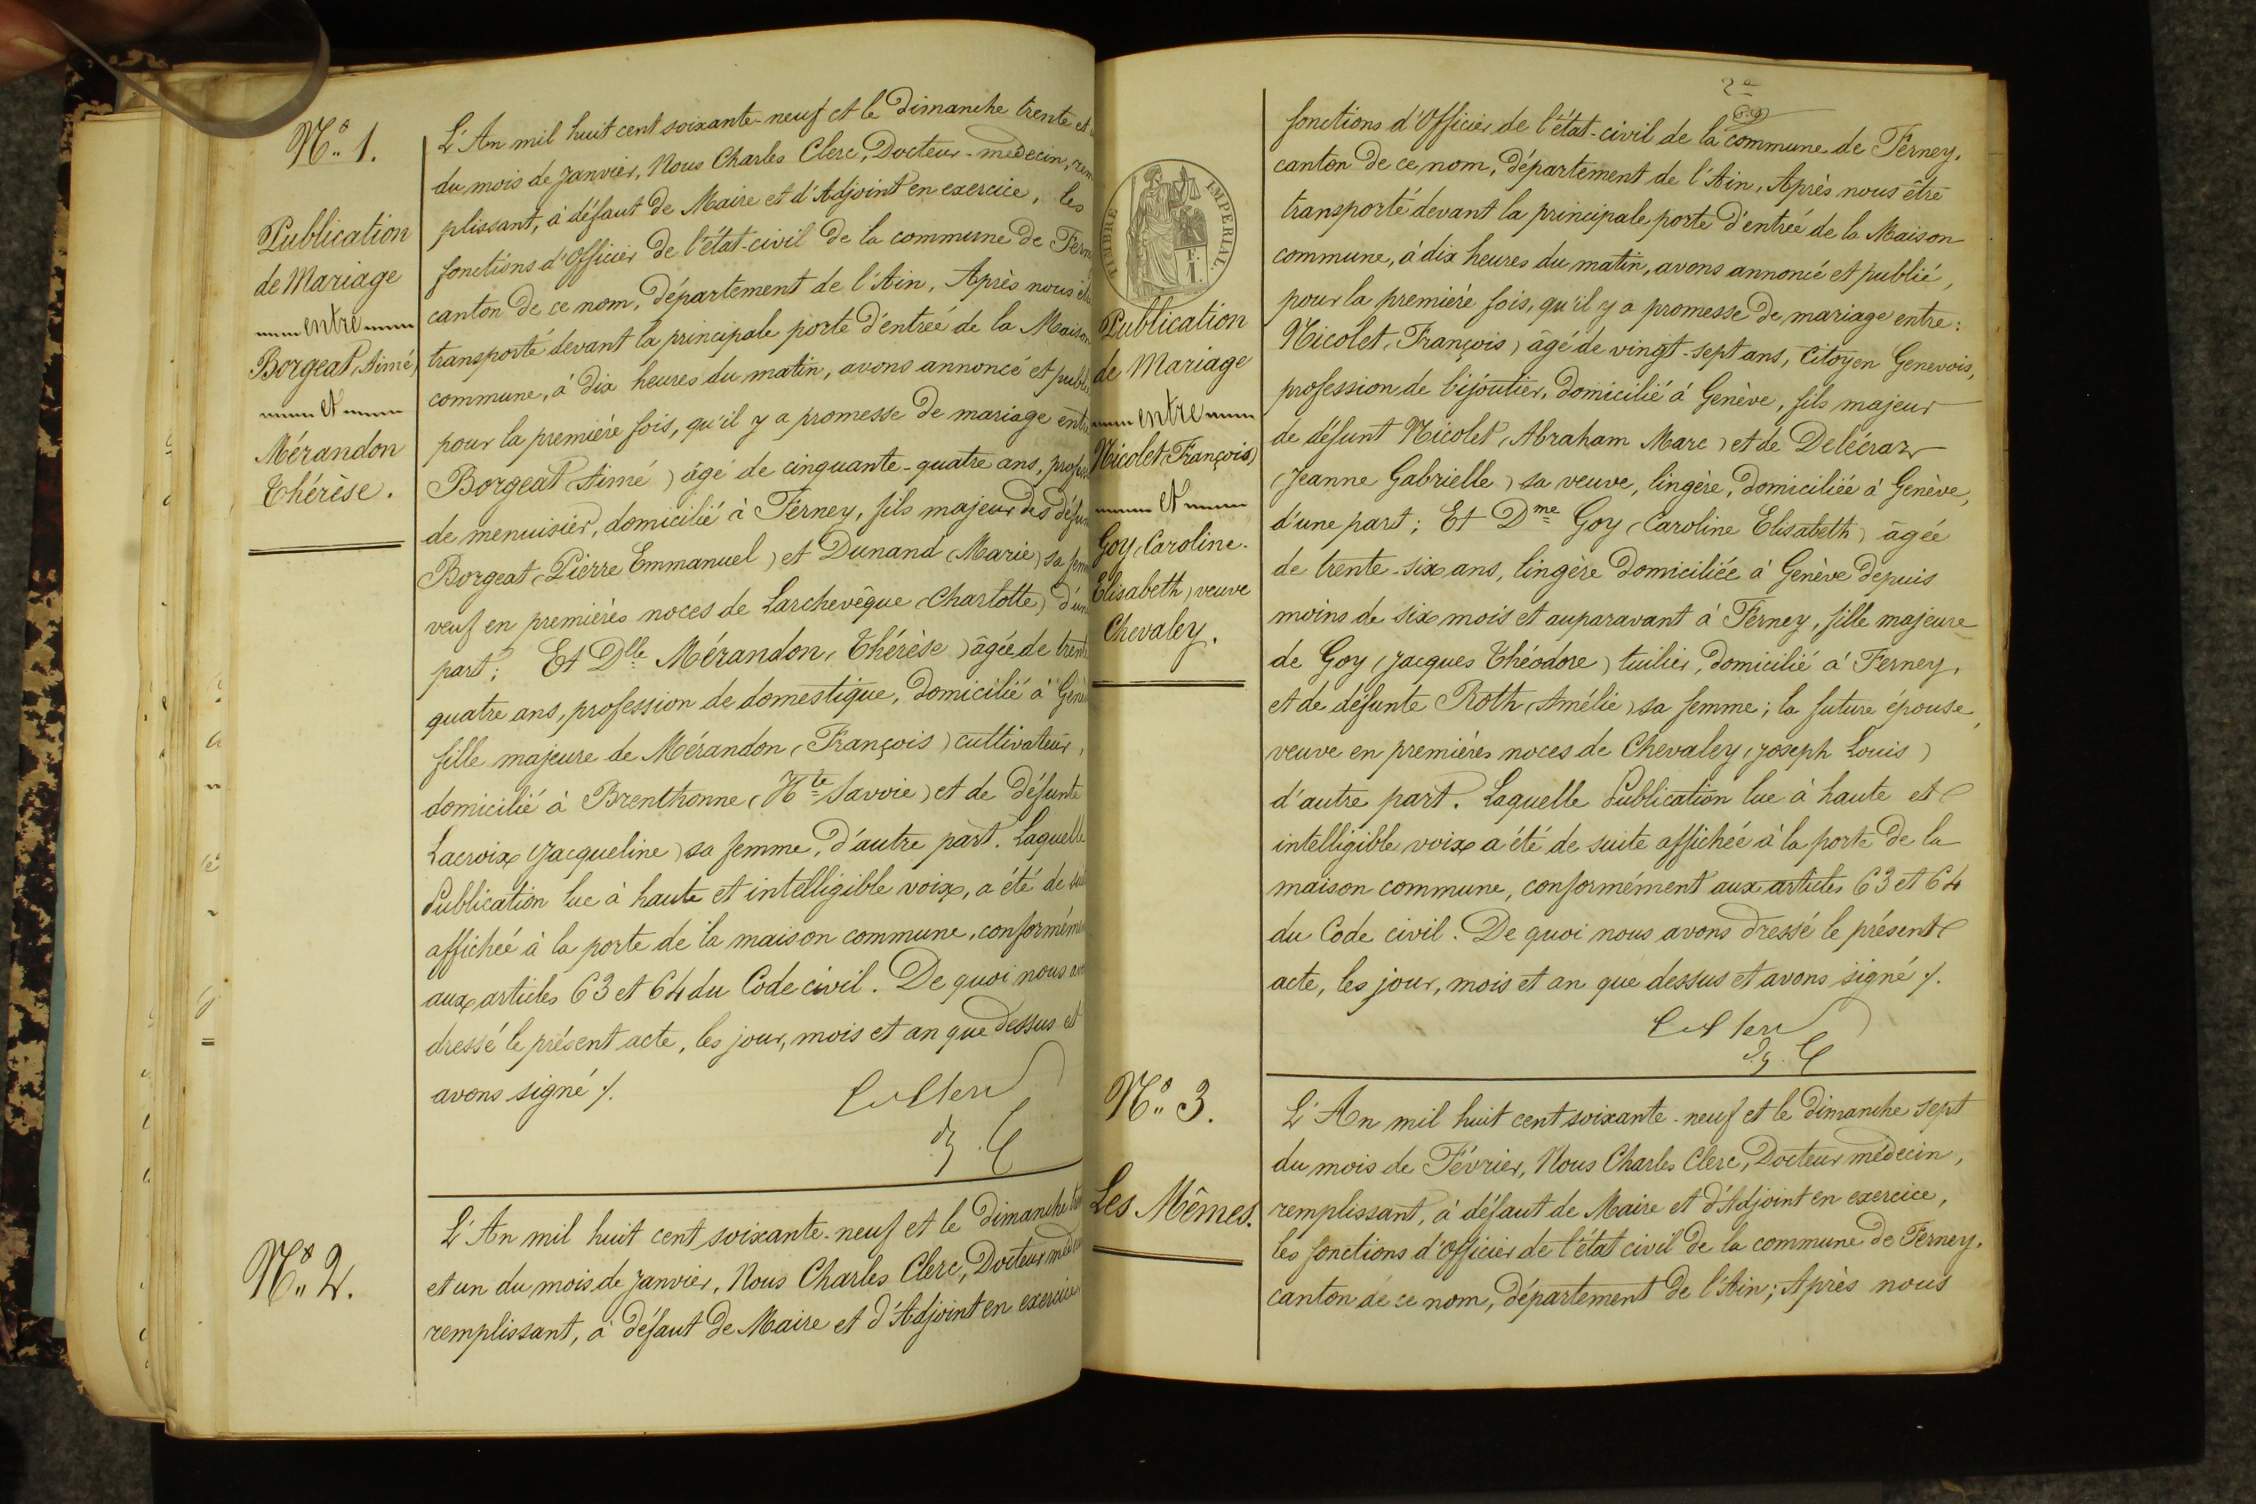 Nº 1.
Publication
de Mariage
entre
Borgeat (Aimé)
et
Mérandon
Thérèse.
L'An mil huit cent soixante-neuf et le dimanche trente et
du mois de Janvier, Nous Charles Clerc, Docteur-médecin, rem
plissant, à défaut de Maire et d'Adjoint en exercice, les
fonctions d'Officier de l'état-civil de la commune de Fern
canton de ce nom, département de l'Ain, Après nous êt
transporté devant la principale porte d'entrée de la Maison
commune, à dix heures du matin, avons annoncé et publi
pour la première fois, qu'il y a promesse de mariage entr
Borgeat (Aimé) âgé de cinquante-quatre ans, profes
de menuisier, domicilié à Ferney, fils majeur des défun
Borgeat (Pierre Emmanuel) et Dunand (Marie) sa fem
veuf en premières noces de Larchevêque (Charlotte) d'un
part; Et Dlle Mérandon (Thérèse) âgée de trente
quatre ans, profession de domestique, domicilié à Genè
fille majeure de Mérandon (François) cultivateur,
domicilié à Brenthonne (Hte Savoie) et de défunte
Lacroix (Jacqueline) sa femme, d'autre part. Laquelle
Publication lue à haute et intelligible voix, a été de sui
affichée à la porte de la maison commune, conformém
aux articles 63 et 64 du Code civil. De quoi nous av
dressé le présent acte, les jour, mois et an que dessus et
avons signé /.
Nº 2.
L'An mil huit cent soixante-neuf et le dimanche tre
et un du mois de Janvier, Nous Charles Clerc, Docteur méde
remplissant, à défaut de Maire et d'Adjoint en exercice,
2e
TIMBRE IMPÉRIAL
Publication
de Mariage
entre
Nicolet (François)
et
Goy (Caroline.
Elisabeth) veuve
Chevaley.
fonctions d'Officier de l'état-civil de la commune de Ferney,
canton de ce nom, département de l'Ain, Après nous être
transporté devant la principale porte d'entrée de la Maison
commune, à dix heures du matin, avons annoncé et publié,
pour la première fois, qu'il y a promesse de mariage entre:
Nicolet (François) âgé de vingt-sept ans, Citoyen Genevois,
profession de bijoutier, domicilié à Genève, fils majeur
de défunt Nicolet (Abraham Marc) et de Delécraz
(Jeanne Gabrielle) sa veuve, lingère, domiciliée à Genève,
d'une part; Et Dme Goy (Caroline Elisabeth) âgée
de trente-six ans, lingère domiciliée à Genève depuis
moins de six mois et auparavant à Ferney, fille majeure
de Goy (Jacques Théodore) tuilier, domicilié à Ferney,
et de défunte Roth (Amélie) sa femme; la future épouse,
veuve en premières noces de Chevaley (Joseph Louis)
d'autre part. Laquelle Publication lue à haute et
intelligible voix a été de suite affichée à la porte de la
maison commune, conformément aux articles 63 et 64
du Code civil. De quoi nous avons dressé le présent
acte, les jour, mois et an que dessus et avons signé /.
Nº 3.
Les Mêmes.
L'An mil huit cent soixante-neuf et le dimanche sept
du mois de Février, Nous Charles Clerc, Docteur médecin,
remplissant, à défaut de Maire et d'Adjoint en exercice,
les fonctions d'Officier de l'état civil de la commune de Ferney,
canton de ce nom, département de l'Ain; Après nous